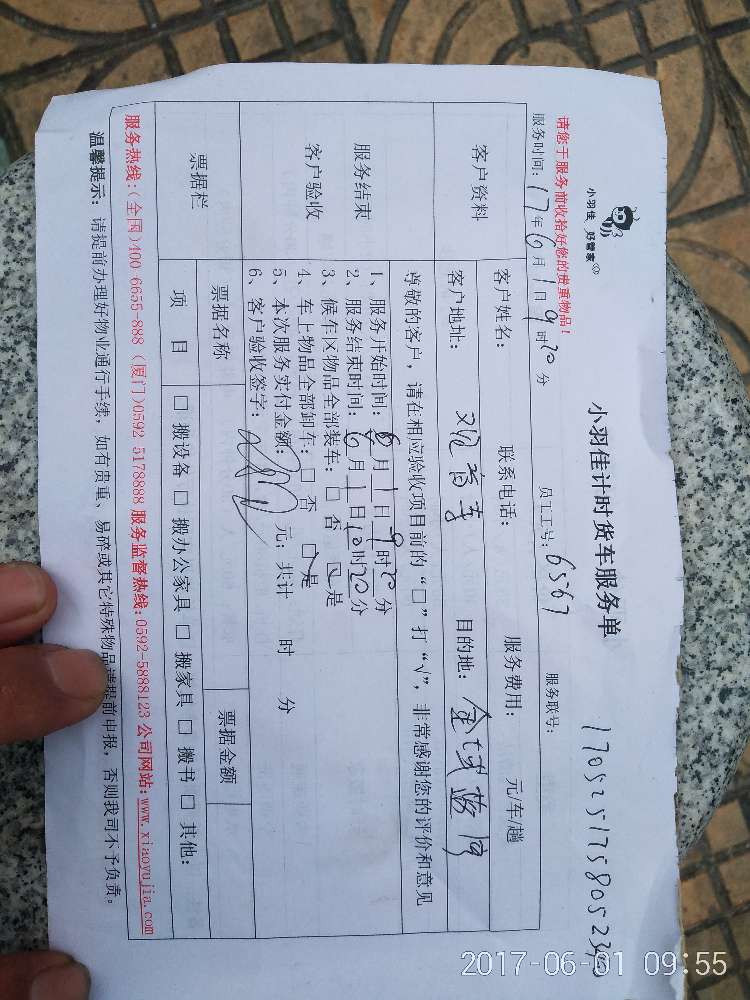 小羽佳 好管家
小羽佳计时货车服务单
请您于服务前收拾好您的贵重物品！
服务时间：17年6月1日9时20分 员工工号：6567 服务联号：
客户资料
客户姓名： 联系电话： 服务费用： 元/车/趟
客户地址： 目的地：
服务结束
客户验收
尊敬的客户，请在相应验收项目前的“□”打“√”，非常感谢您的评价和意见
1、服务开始时间：6月1日9时20分
2、服务结束时间：6月1日10时20分
3、候车区物品全部装车：□ 否 □ 是
4、车上物品全部卸车：□ 否 □ 是
5、本次服务实付金额： 元；共计 时 分
6、客户验收签字：
票据栏
票据名称 票据金额
项 目 □ 搬设备 □ 搬办公家具 □ 搬家具 □ 搬书 □ 其他：
服务热线：(全国)400 6655-888 (厦门)0592 5178888 服务监督热线：0592-5888123 公司网站：www.xiaoyujia.com
温馨提示：请提前办理好物业通行手续，如有贵重、易碎或其它特殊物品请提前申报，否则我司不予负责。
2017-06-01 09:55